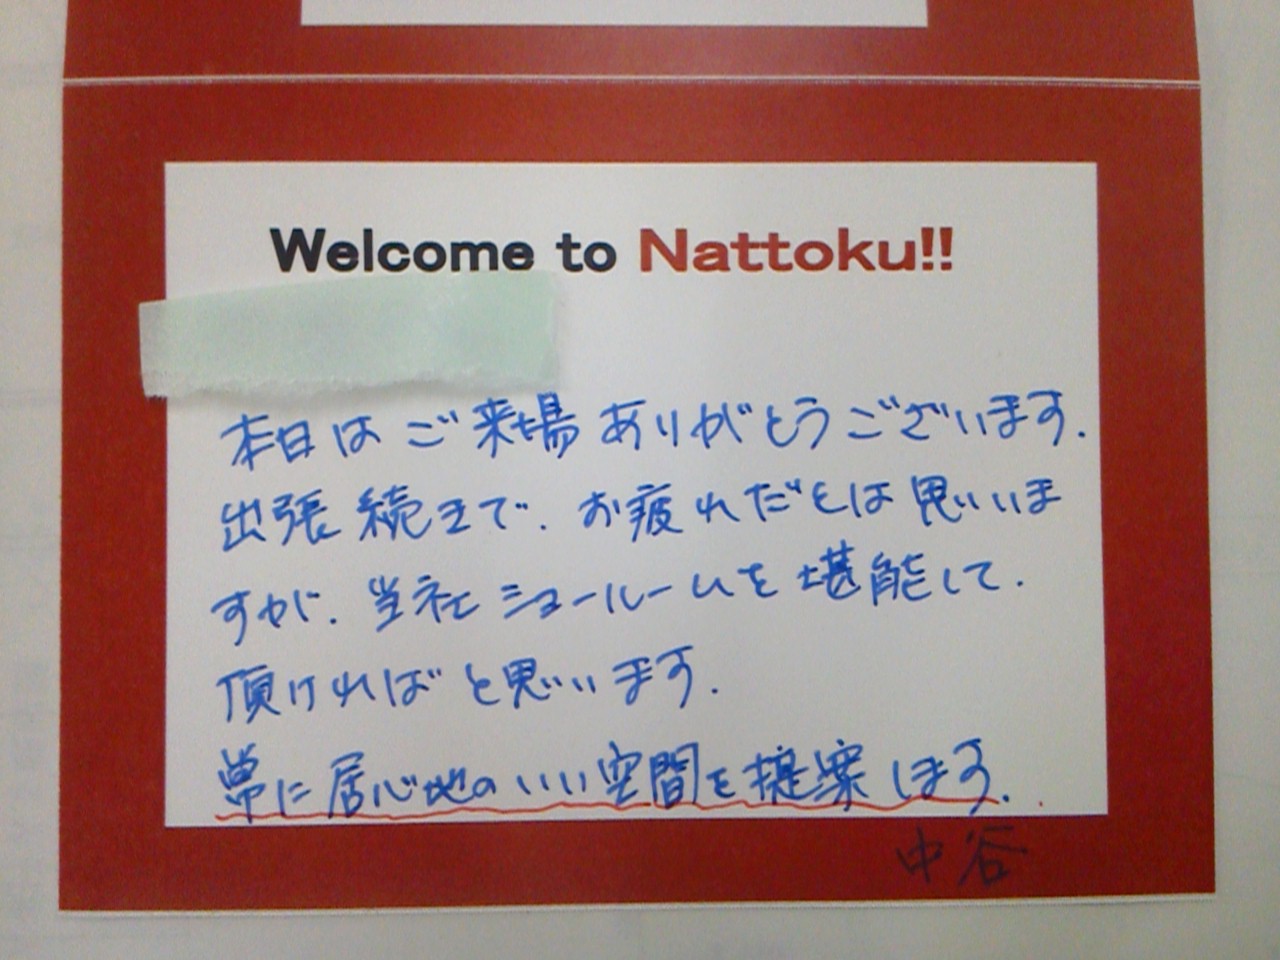 Welcome to Nattoku!!
本日はご来場ありがとうございます.
出張続きで、お疲れだとは思いま
すが、当社ショールームを堪能して、
頂ければと思います.
常に居心地のいい空間を提案します.
中谷